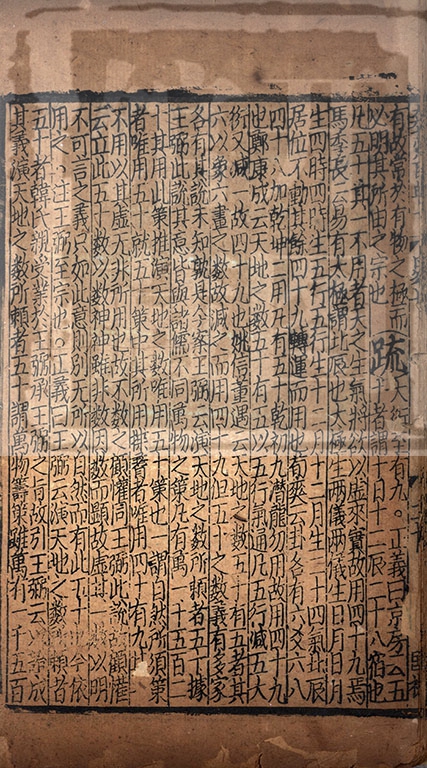 有故常於有物之極而疏大衍至有九。正義曰京房云五
必明其所由之宗也十者謂十日十二辰二十八宿也
凡五十其一不用者天之生氣將欲以虛來實故用四十九焉
馬季長云易有太極謂北辰也太極生兩儀兩儀生日月日月
生四時四時生五行五行生十二月十二月生二十四氣北辰
居位不動其餘四十九轉運而用也荀爽云卦各有六爻六八
四十八加乾坤二用凡有五十乾初九潛龍勿用故用四十九
也鄭康成云天地之數五十有五以五行氣通凡五行減五大
衍又減一故四十九也姚信董遇云天地之數五十有五者其
六以象六畫之數故減之而用四十九但五十之數義有多家
各有其說未知孰是今案王弼云演天地之數所賴者五十據
王弼此說其意皆與諸儒不同萬物之策凡有萬一千五百二
十其用此策推演天地之數唯用五十策也一謂自然所須策
者唯用五十就五十策中其所用揲蓍者唯用四十有九其一
不用以其虛无非所用也故不數之顧懽同王弼此說故顧懽
云立此五十數以數神神雖非數因數而顯故虛其一數以明
不可言之義只如此意則別无所以自然而有此五十也今依
用之。注王弼至宗也。正義曰王弼云演天地之數所賴者
五十者韓氏親受業於王弼承王弼之旨故引王弼云以證成
其義演天地之數所賴者五十謂萬物籌策雖萬有一千五百